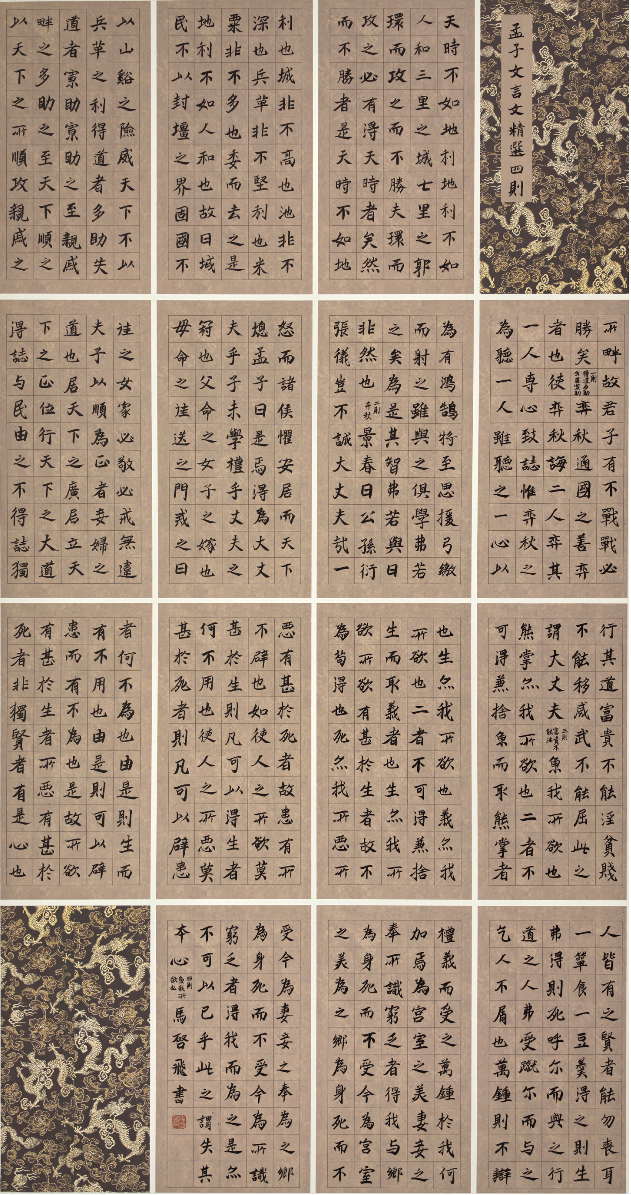 孟子文言文精選四則
天時不如地利地利不如
人和三里之城七里之郭
環而攻之而不勝夫環而
攻之必有得天時者矣然
而不勝者是天時不如地
利也城非不高也池非不
深也兵革非不堅利也米
粟非不多也委而去之是
地利不如人和也故曰域
民不以封壃之界固國不
以山谿之險威天下不以
兵革之利得道者多助失
道者寡助寡助之至親戚
畔之多助之至天下順之
以天下之所順攻親戚之
所畔故君子有不戰戰必
勝矣一則得道多助失道寡助弈秋通國之善弈
者也使弈秋誨二人弈其
一人專心致誌惟弈秋之
為聽一人雖聽之一心以
為有鴻鵠將至思援弓繳
而射之雖與之俱學弗若
之矣為是其智弗若與曰
非然也二則弈秋景春曰公孫衍
張儀豈不誠大丈夫哉一
怒而諸侯懼安居而天下
熄孟子曰是焉得為大丈
夫乎子未學禮乎丈夫之
冠也父命之女子之嫁也
母命之往送之門戒之曰
往之女家必敬必戒無違
夫子以順為正者妾婦之
道也居天下之廣居立天
下之正位行天下之大道
得誌與民由之不得誌獨
行其道富貴不能淫貧賤
不能移威武不能屈此之
謂大丈夫三則富貴不能淫魚我所欲也
熊掌亦我所欲也二者不
可得兼捨魚而取熊掌者
也生亦我所欲也義亦我
所欲也二者不可得兼捨
生而取義者也生亦我所
欲所欲有甚於生者故不
為苟得也死亦我所惡所
惡有甚於死者故患有所
不辟也如使人之所欲莫
甚於生則凡可以得生者
何不用也使人之所惡莫
甚於死者則凡可以辟患
者何不為也由是則生而
有不用也由是則可以辟
患而有不為也是故所欲
有甚於生者所惡有甚於
死者非獨賢者有是心也
人皆有之賢者能勿喪耳
一簞食一豆羹得之則生
弗得則死呼尔而與之行
道之人弗受蹴尔而與之
乞人不屑也萬鍾則不辯
禮義而受之萬鍾於我何
加焉為宮室之美妻妾之
奉所識窮乏者得我與鄉
為身死而不受今為宮室
之美為之鄉為身死而不
受今為妻妾之奉為之鄉
為身死而不受今為所識
窮乏者得我而為之是亦
不可以已乎此之謂失其
本心四則魚我所欲也馬啓飛書